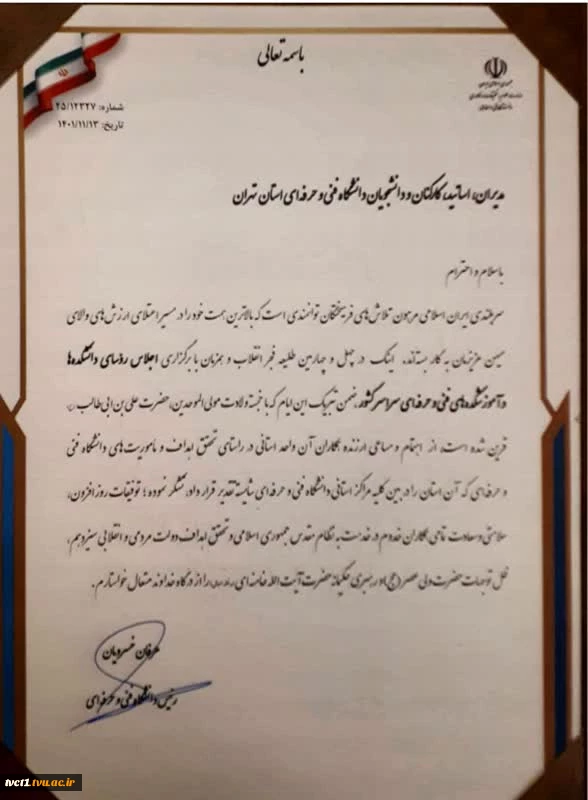 باسمه تعالی
شماره: ۲۵/۱۲۳۲۷
تاریخ: ۱۴۰۱/۱۱/۱۳
مدیران، اساتید، کارکنان و دانشجویان دانشگاه فنی و حرفه‌ای استان تهران
باسلام و احترام
سربلندی ایران اسلامی مرهون تلاش‌های فرهیختگان توانمندی است که بالاترین همت خود را در مسیر اعتلای ارزش‌های والای
میهن عزیزمان به کار بسته‌اند. اینک در چهل و چهارمین طلیعه فجر انقلاب و همزمان با برگزاری اجلاس رؤسای دانشکده‌ها
و آموزشکده‌های فنی و حرفه‌ای سراسر کشور، ضمن تبریک این ایام که با خجسته ولادت مولی الموحدین، حضرت علی بن ابی طالب
قرین شده است، از اهتمام و مساعی ارزنده همکاران آن واحد استانی در راستای تحقق اهداف و ماموریت‌های دانشگاه فنی
و حرفه‌ای که آن استان را در بین کلیه مراکز استانی دانشگاه فنی و حرفه‌ای شایسته تقدیر قرار داد، تشکر نموده؛ توفیقات روزافزون،
سلامتی و سعادت تمامی همکاران خدوم در خدمت به نظام مقدس جمهوری اسلامی و تحقق اهداف دولت مردمی و انقلابی سیزدهم،
ظل توجهات حضرت ولی عصر (عج) و رهبری حکیمانه حضرت آیت الله خامنه‌ای را از درگاه خداوند متعال خواستارم.
عرفان خسرویان
رئیس دانشگاه فنی و حرفه‌ای
tvct1.tvu.ac.ir